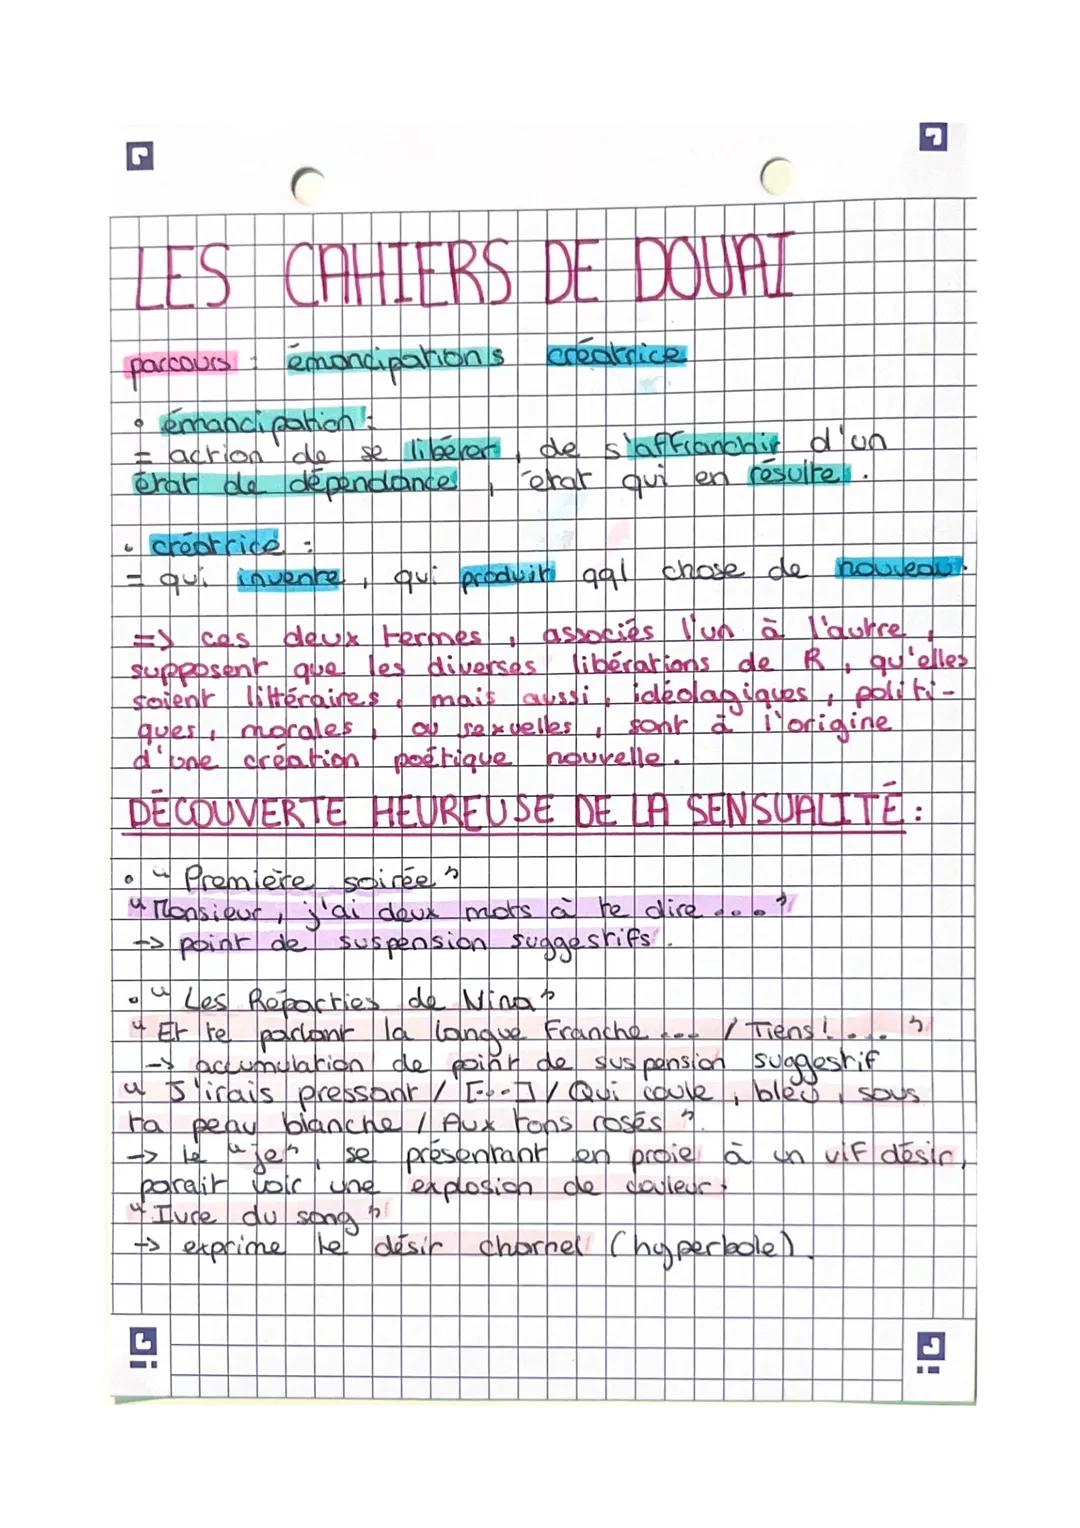 LES CAHIERS DE DOUAI
parcours : émancipations créatrice
• émancipation :
= action de se libérer, de s'affranchir d'un
état de dépendance, état qui en résulte.
• créatrice :
= qui invente, qui produit qql chose de nouveau.
=> ces deux termes, associés l'un à l'autre,
supposent que les diverses libérations de R, qu'elles
soient littéraires, mais aussi, idéologiques, politi-
ques, morales, ou sexuelles, sont à l'origine
d'une création poétique nouvelle.
DÉCOUVERTE HEUREUSE DE LA SENSUALITÉ :
• " Première soirée "
" Monsieur, j'ai deux mots à te dire ... "
-> point de suspension suggestifs.
• " Les Réparties de Nina "
" Et te parlant la langue Franche ... / Tiens! ... "
-> accumulation de point de suspension suggestif
" J'irais pressant / [...] / Qui coule, bleu, sous
ta peau blanche / Aux tons rosés ".
-> le "je", se présentant en proie à un vif désir,
parait voir une explosion de couleur.
" Ivre du sang "
-> exprime le désir charnel (hyperbole).